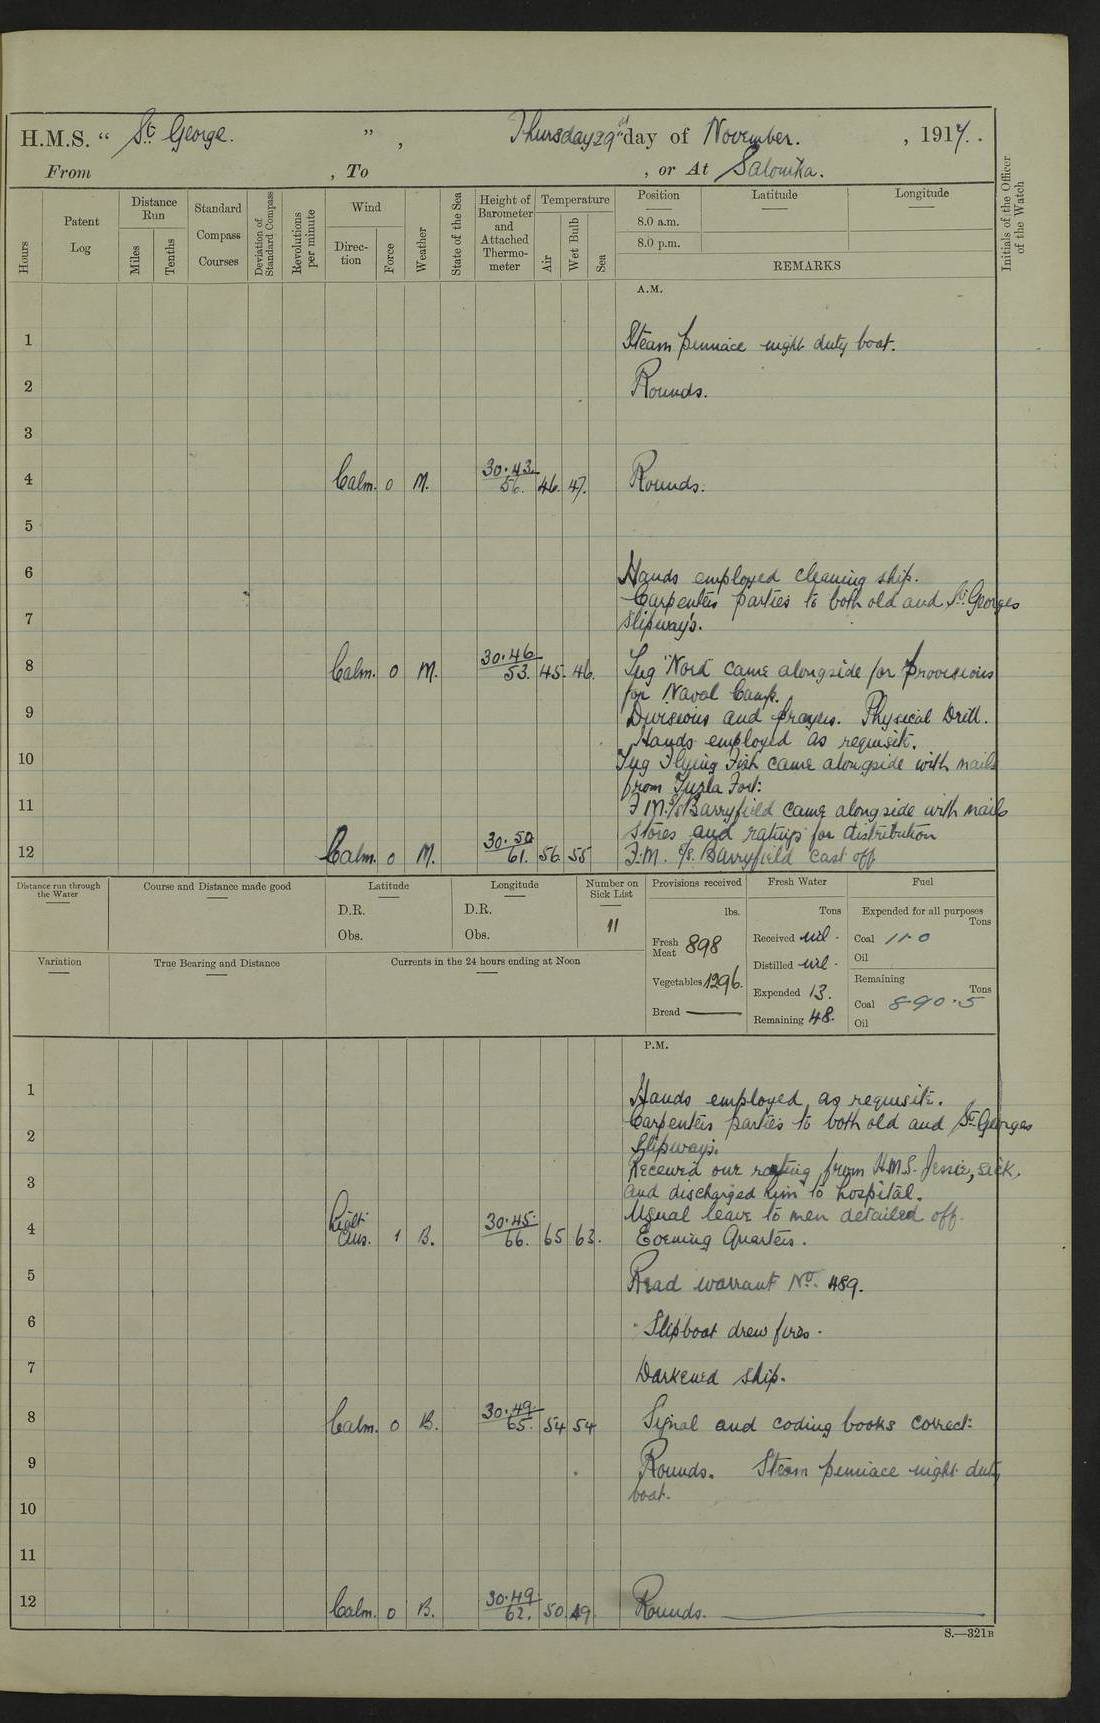 H.M.S. “ St. George. ” , Thursday 29th day of November. , 1917.
From , To , or At Salonika.
Hours
Patent Log
Distance Run
Miles
Tenths
Standard Compass Courses
Deviation of Standard Compass
Revolutions per minute
Wind
Direction
Force
Weather
State of the Sea
Height of Barometer and Attached Thermometer
Temperature
Air
Wet Bulb
Sea
Position
8.0 a.m.
8.0 p.m.
Latitude
Longitude
REMARKS
Initials of the Officer of the Watch
A.M.
1 Steam pinnace night duty boat.
2 Rounds.
3
4 Calm. 0 M. 30.43 56. 46. 47. Rounds.
5
6 Hands employed cleaning ship.
Carpenters parties to both old and St. Georges
7 slipways.
8 Calm. 0 M. 30.46 53. 45. 46. Tug "Nord came alongside for provisions
for Naval Camp.
9 Divisions and prayers. Physical Drill.
Hands employed as requisite.
10 Tug Flying Fish came alongside with mails
from Tuzla Fort:
11 F.M. S/S Barryfield came alongside with mails
stores and ratings for distribution
12 Calm. 0 M. 30.50 61. 56. 55 F.M. S/S. Barryfield cast off
Distance run through the Water
Course and Distance made good
Latitude
D.R.
Obs.
Longitude
D.R.
Obs.
Number on Sick List
11
Provisions received
lbs.
Fresh Meat 898
Vegetables 1296.
Bread —
Fresh Water
Tons
Received nil.
Distilled nil.
Expended 13.
Remaining 48.
Fuel
Expended for all purposes
Tons
Coal 11.0
Oil
Remaining
Tons
Coal 890.5
Oil
Variation
True Bearing and Distance
Currents in the 24 hours ending at Noon
P.M.
1 Hands employed as requisite.
Carpenters parties to both old and St. Georges
2 Slipways.
Received one rating from H.M.S. Jessie, sick,
3 and discharged him to hospital.
Usual leave to men detailed off.
4 Light airs. 1 B. 30.45. 66. 65 63. Evening Quarters.
5 Read warrant No. 489.
6 Slipboat drew fires.
7 Darkened ship.
8 Calm. 0 B. 30.49. 65. 54 54 Signal and coding books correct.
9 Rounds. Steam pinnace night duty
boat.
10
11
12 Calm. 0 B. 30.49. 62. 50. 49. Rounds.
S.—321B